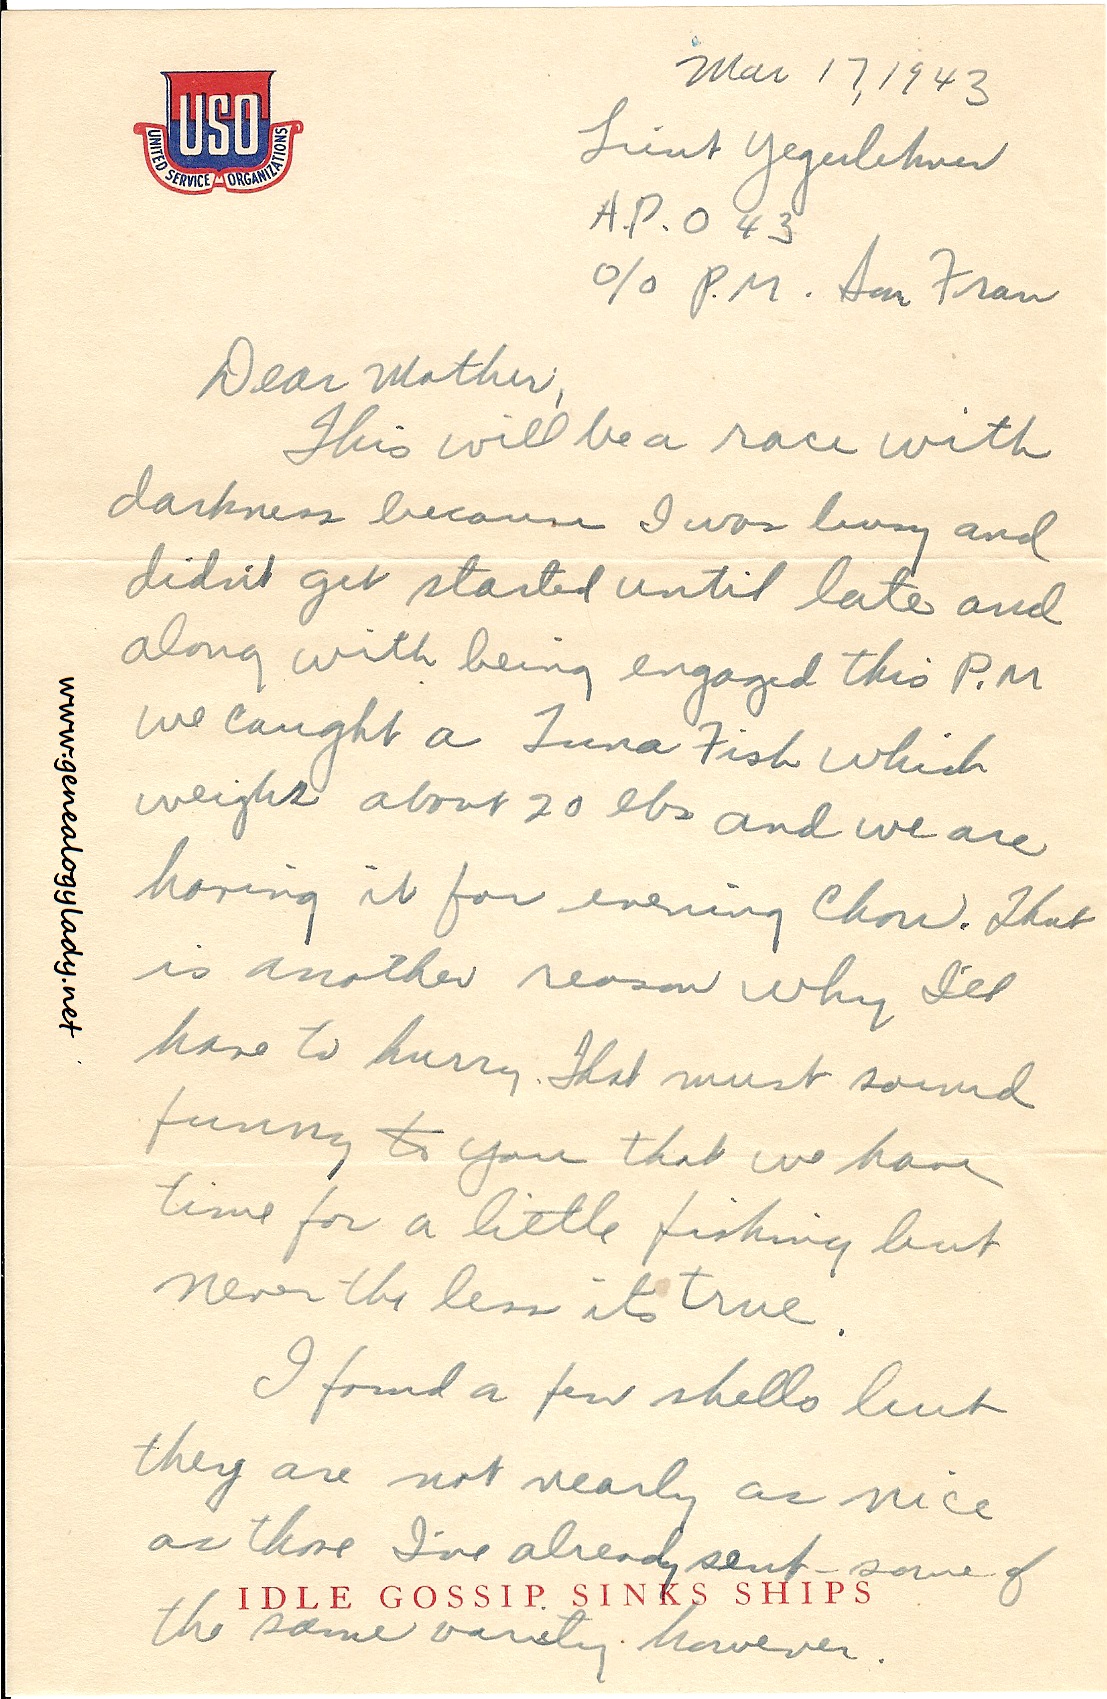 USO
UNITED SERVICE ORGANIZATIONS
Mar 17, 1943
Lieut Yegerlehner
A.P.O 43
c/o P.M. San Fran
Dear Mother,
This will be a race with
darkness because I was busy and
didn't get started until late and
along with being engaged this P.M
we caught a Tuna Fish which
weighs about 20 lbs and we are
having it for evening Chow. That
is another reason why I'll
have to hurry. That must sound
funny to you that we have
time for a little fishing but
never the less it's true.
I found a few shells but
they are not nearly as nice
as those I've already sent - some of
IDLE GOSSIP SINKS SHIPS
the same variety however.
www.genealogylady.net